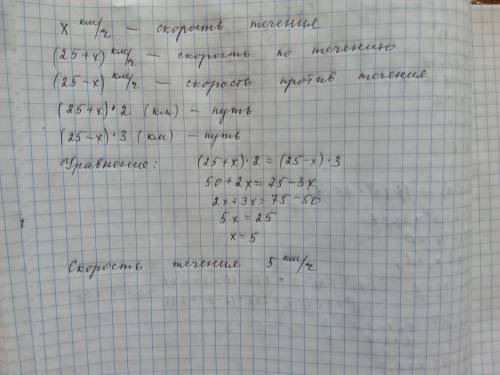 x км/ч – скорость течения
(25+x) км/ч – скорость по течению
(25–x) км/ч – скорость против течения
(25+x)·2 (км) – путь
(25–x)·3 (км) – путь
Уравнение: (25+x)·2 = (25–x)·3
50+2x = 75–3x
2x+3x = 75–50
5x = 25
x = 5
Скорость течения 5 км/ч